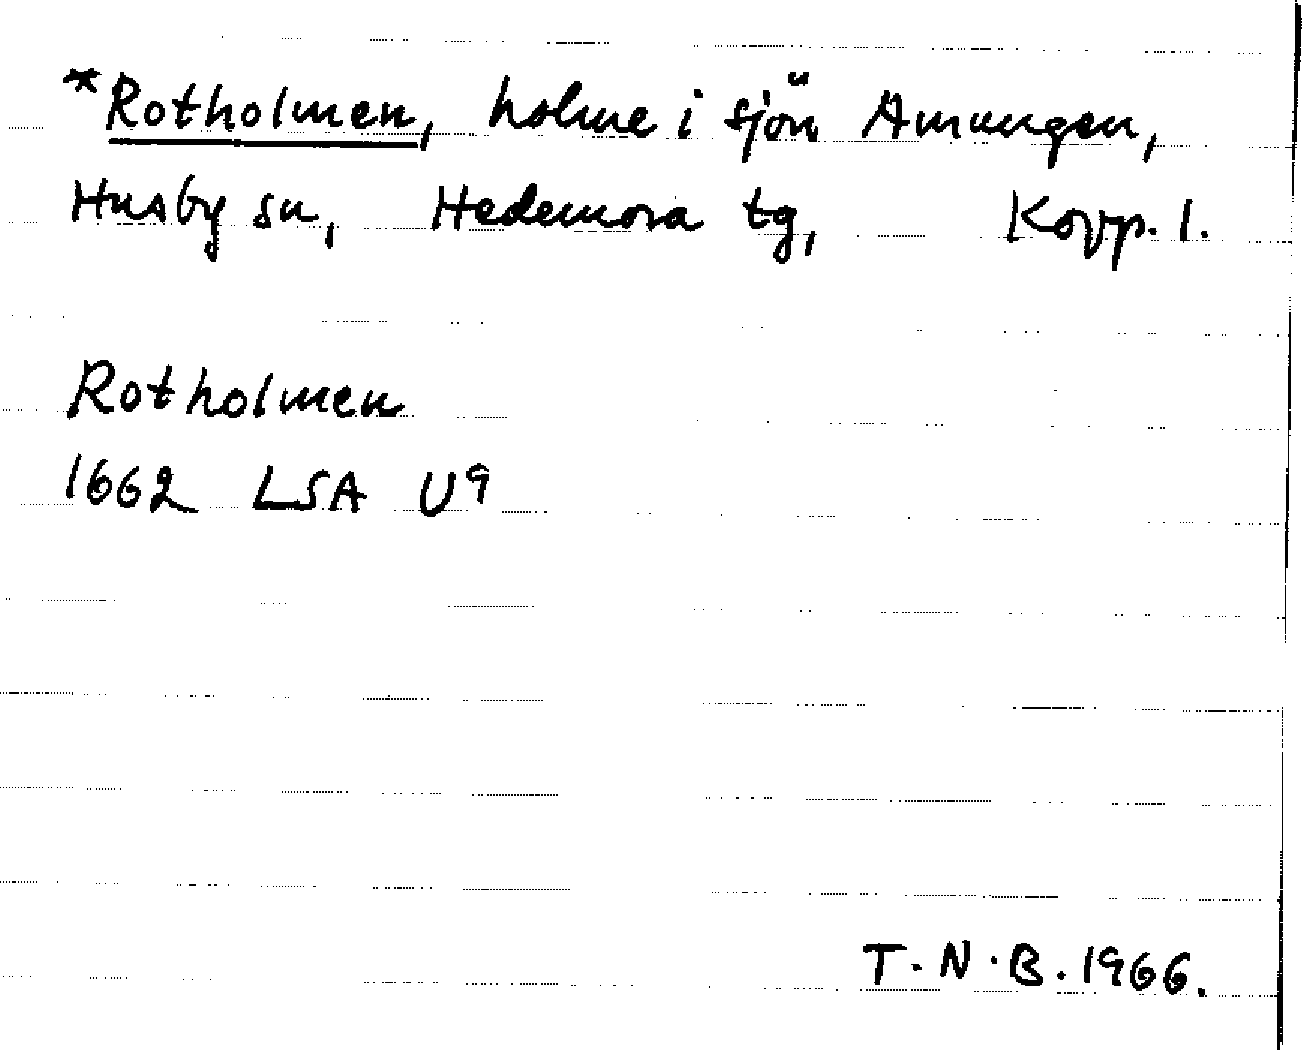 *Rotholmen, holme i sjön Amungen,
Husby sn, Hedemora tg, Kopp. l.
Rotholmen
1662 LSA U9
T.N.B. 1966.